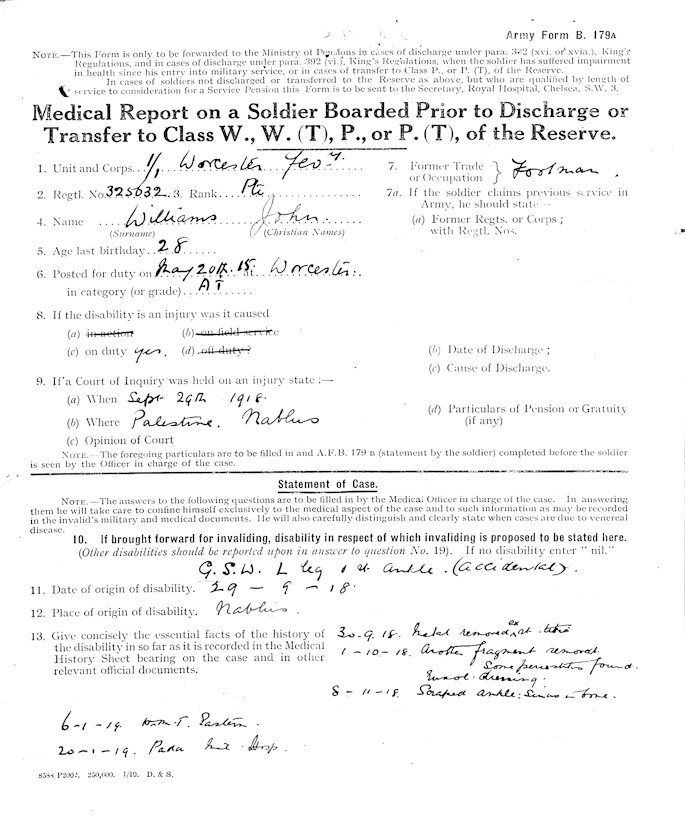 Army Form B. 179A
NOTE.—This Form is only to be forwarded to the Ministry of Pensions in cases of discharge under para. 392 (xvi. or xvia.), King's
Regulations, and in cases of discharge under para. 392 (vi.), King's Regulations, when the soldier has suffered impairment
in health since his entry into military service, or in cases of transfer to Class P., or P. (T), of the Reserve.
In cases of soldiers not discharged or transferred to the Reserve as above, but who are qualified by length of
service to consideration for a Service Pension this Form is to be sent to the Secretary, Royal Hospital, Chelsea, S.W. 3.
Medical Report on a Soldier Boarded Prior to Discharge or
Transfer to Class W., W. (T), P., or P. (T), of the Reserve.
1. Unit and Corps 1/1 Worcester Yeoy.
2. Regtl. No. 325632 3. Rank Pte
4. Name Williams John
(Surname) (Christian Names)
5. Age last birthday 28
6. Posted for duty on May 20th 15 at Worcester
in category (or grade) A I
7. Former Trade
or Occupation } Footman.
7a. If the soldier claims previous service in
Army, he should state—
(a) Former Regts. or Corps ;
with Regtl. Nos.
8. If the disability is an injury was it caused
(a) in action (b) on field service
(c) on duty yes. (d) off duty ?
(b) Date of Discharge ;
(c) Cause of Discharge.
9. If a Court of Inquiry was held on an injury state :—
(a) When Sept 29th 1918.
(b) Where Palestine. Nablus
(c) Opinion of Court
(d) Particulars of Pension or Gratuity
(if any)
NOTE.—The foregoing particulars are to be filled in and A.F.B. 179 B (statement by the soldier) completed before the soldier
is seen by the Officer in charge of the case.
Statement of Case.
NOTE.—The answers to the following questions are to be filled in by the Medical Officer in charge of the case. In answering
them he will take care to confine himself exclusively to the medical aspect of the case and to such information as may be recorded
in the invalid's military and medical documents. He will also carefully distinguish and clearly state when cases are due to venereal
disease.
10. If brought forward for invaliding, disability in respect of which invaliding is proposed to be stated here.
(Other disabilities should be reported upon in answer to question No. 19). If no disability enter "nil."
G.S.W. L leg & ankle. (accidental).
11. Date of origin of disability. 29 – 9 – 18.
12. Place of origin of disability. Nablus.
13. Give concisely the essential facts of the history of
the disability in so far as it is recorded in the Medical
History Sheet bearing on the case and in other
relevant official documents.
30.9.18. Metal removed tibia
1-10-18. Another fragment removed.
Some periostitis found.
Eusol dressing.
8-11-18. Scraped ankle; Sinus in bone.
6-1-19. Eastern.
20-1-19. Mil Hosp.
8588/P2002. 250,000. 1/19. D. & S.